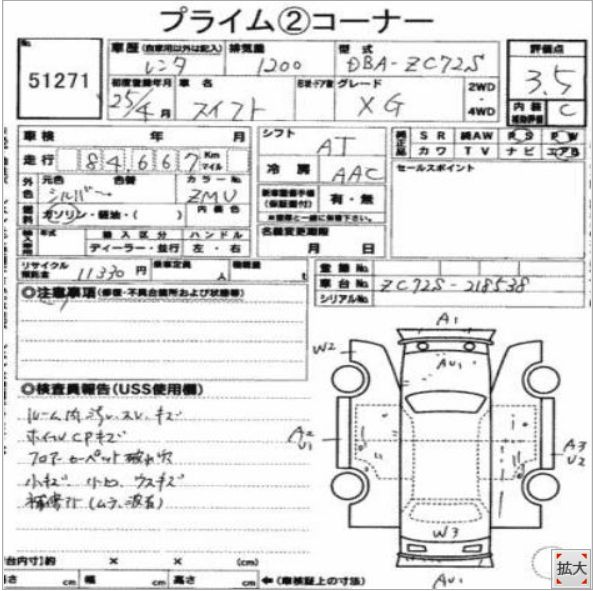 プライム②コーナー
No. 51271
車歴(自家用以外は記入) レンタ
排気量 1200
型式 DBA-ZC72S
評価点 3.5
初度登録年月 25/4月
車名 スイフト
グレード XG
2WD・4WD
内装 C
車検 年 月
シフト AT
SR 純AW PS PW
カワ TV ナビ エアB
走行 84,667 Km マイル
冷房 AAC
セールスポイント
外色 元色 シルバー 色替 カラーNo. ZMU
有・無
燃料 ガソリン・軽油・( ) 内装色
名義変更期限
月 日
年式 輸入区分 ハンドル
ディーラー・並行 左・右
リサイクル預託金 11330円 乗車定員 人 積載量 t
登録No.
車台No. ZC72S-218538
シリアルNo.
◎注意事項(修復・不具合箇所および状態等)
A1
W2
AU1
◎検査員報告(USS使用欄)
ルーム内汚れ、スレ、キズ
ホイルCPキズ
A2
U1
フロアーカーペット破れ穴
A3
U2
小キズ、小凹、ウスキズ
補修跡(ムラ、波有)
W3
台内寸)約 × × (cm)
高さ cm 幅 cm 高さ cm ←(車検証上の寸法)
AU1
拡大